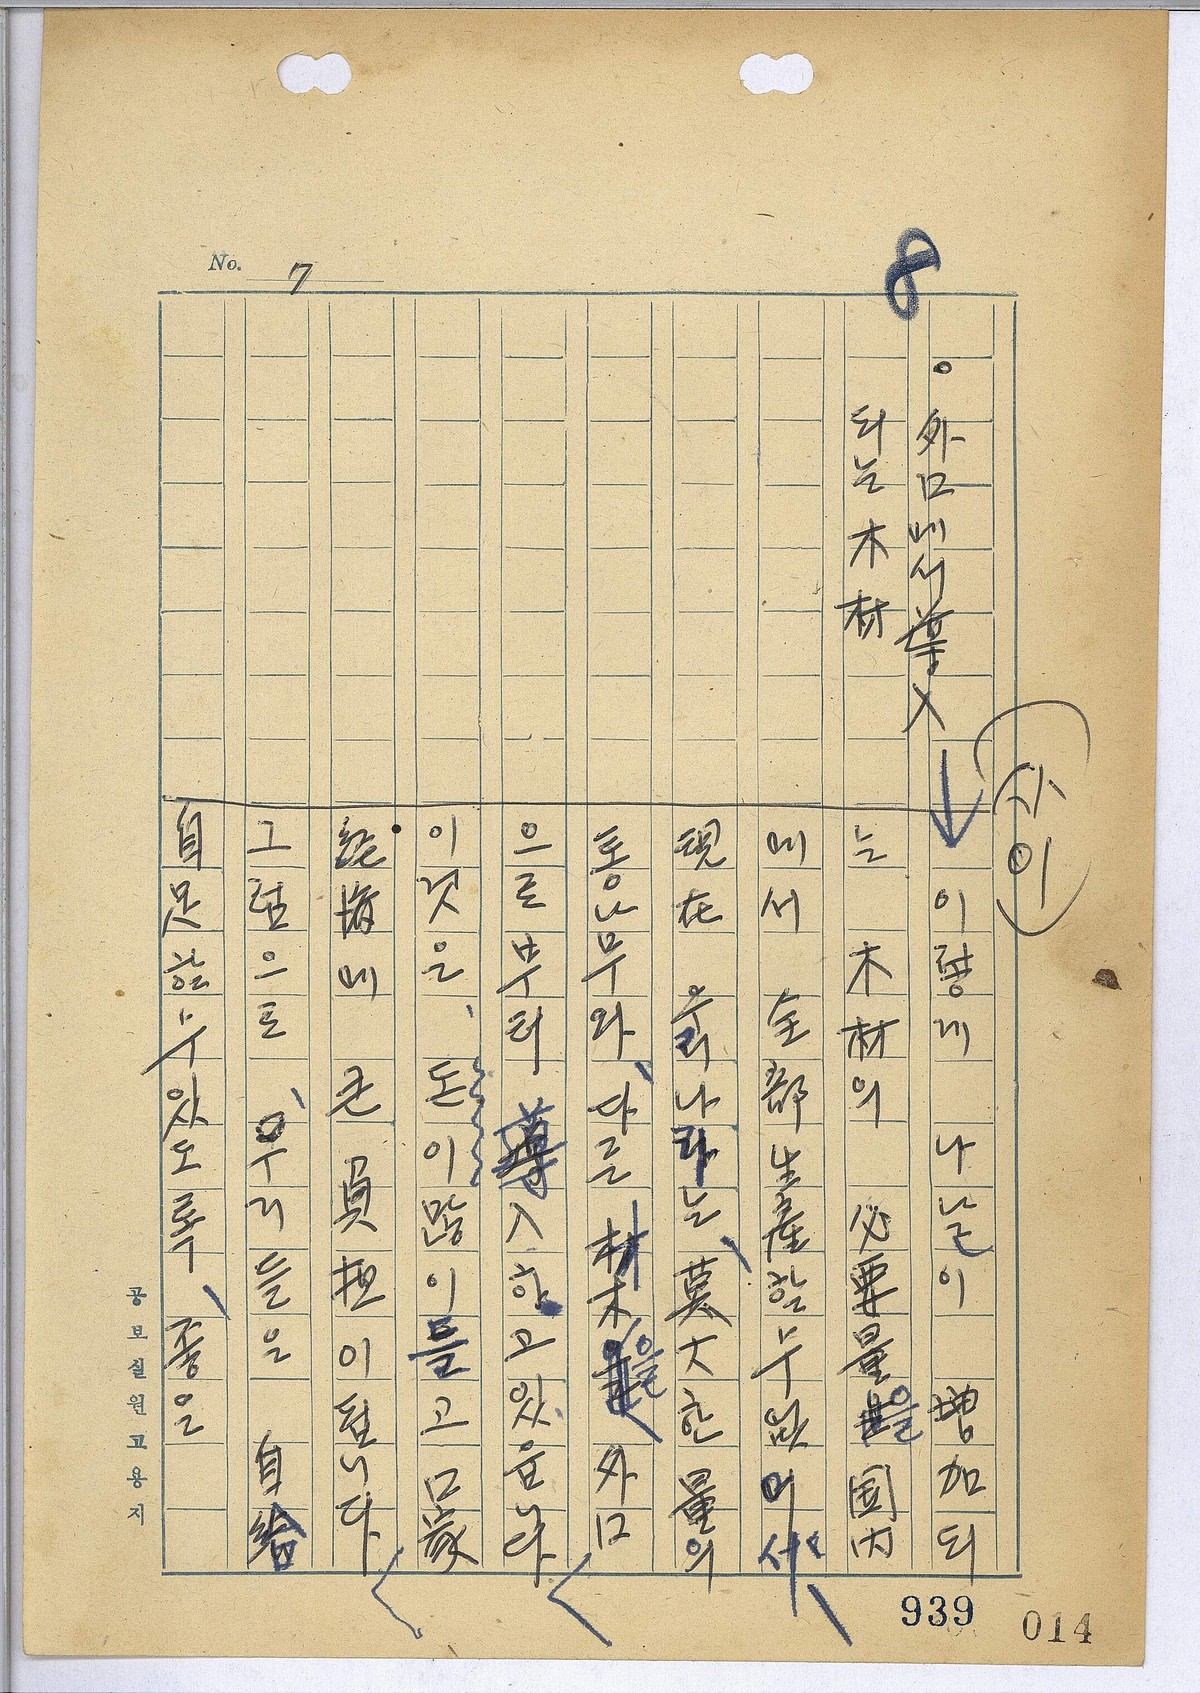 No. 7
8
○ 外口에서 導入
되는 木材
사이
이렇게 나날이 增加되
는 木材의 必要量을 国内
에서 全部 生産할 수 없어서
現在 우리나라는 莫大한 量의
통나무와 다른 材木을 外口
으로부터 導入하고 있읍니다
이것은、돈이 많이 들고 口家
経済에 큰 負担이 됩니다
그럼으로、우리들은 自給
自足할 수 있도록、좋은
공보실원고용지
939
014